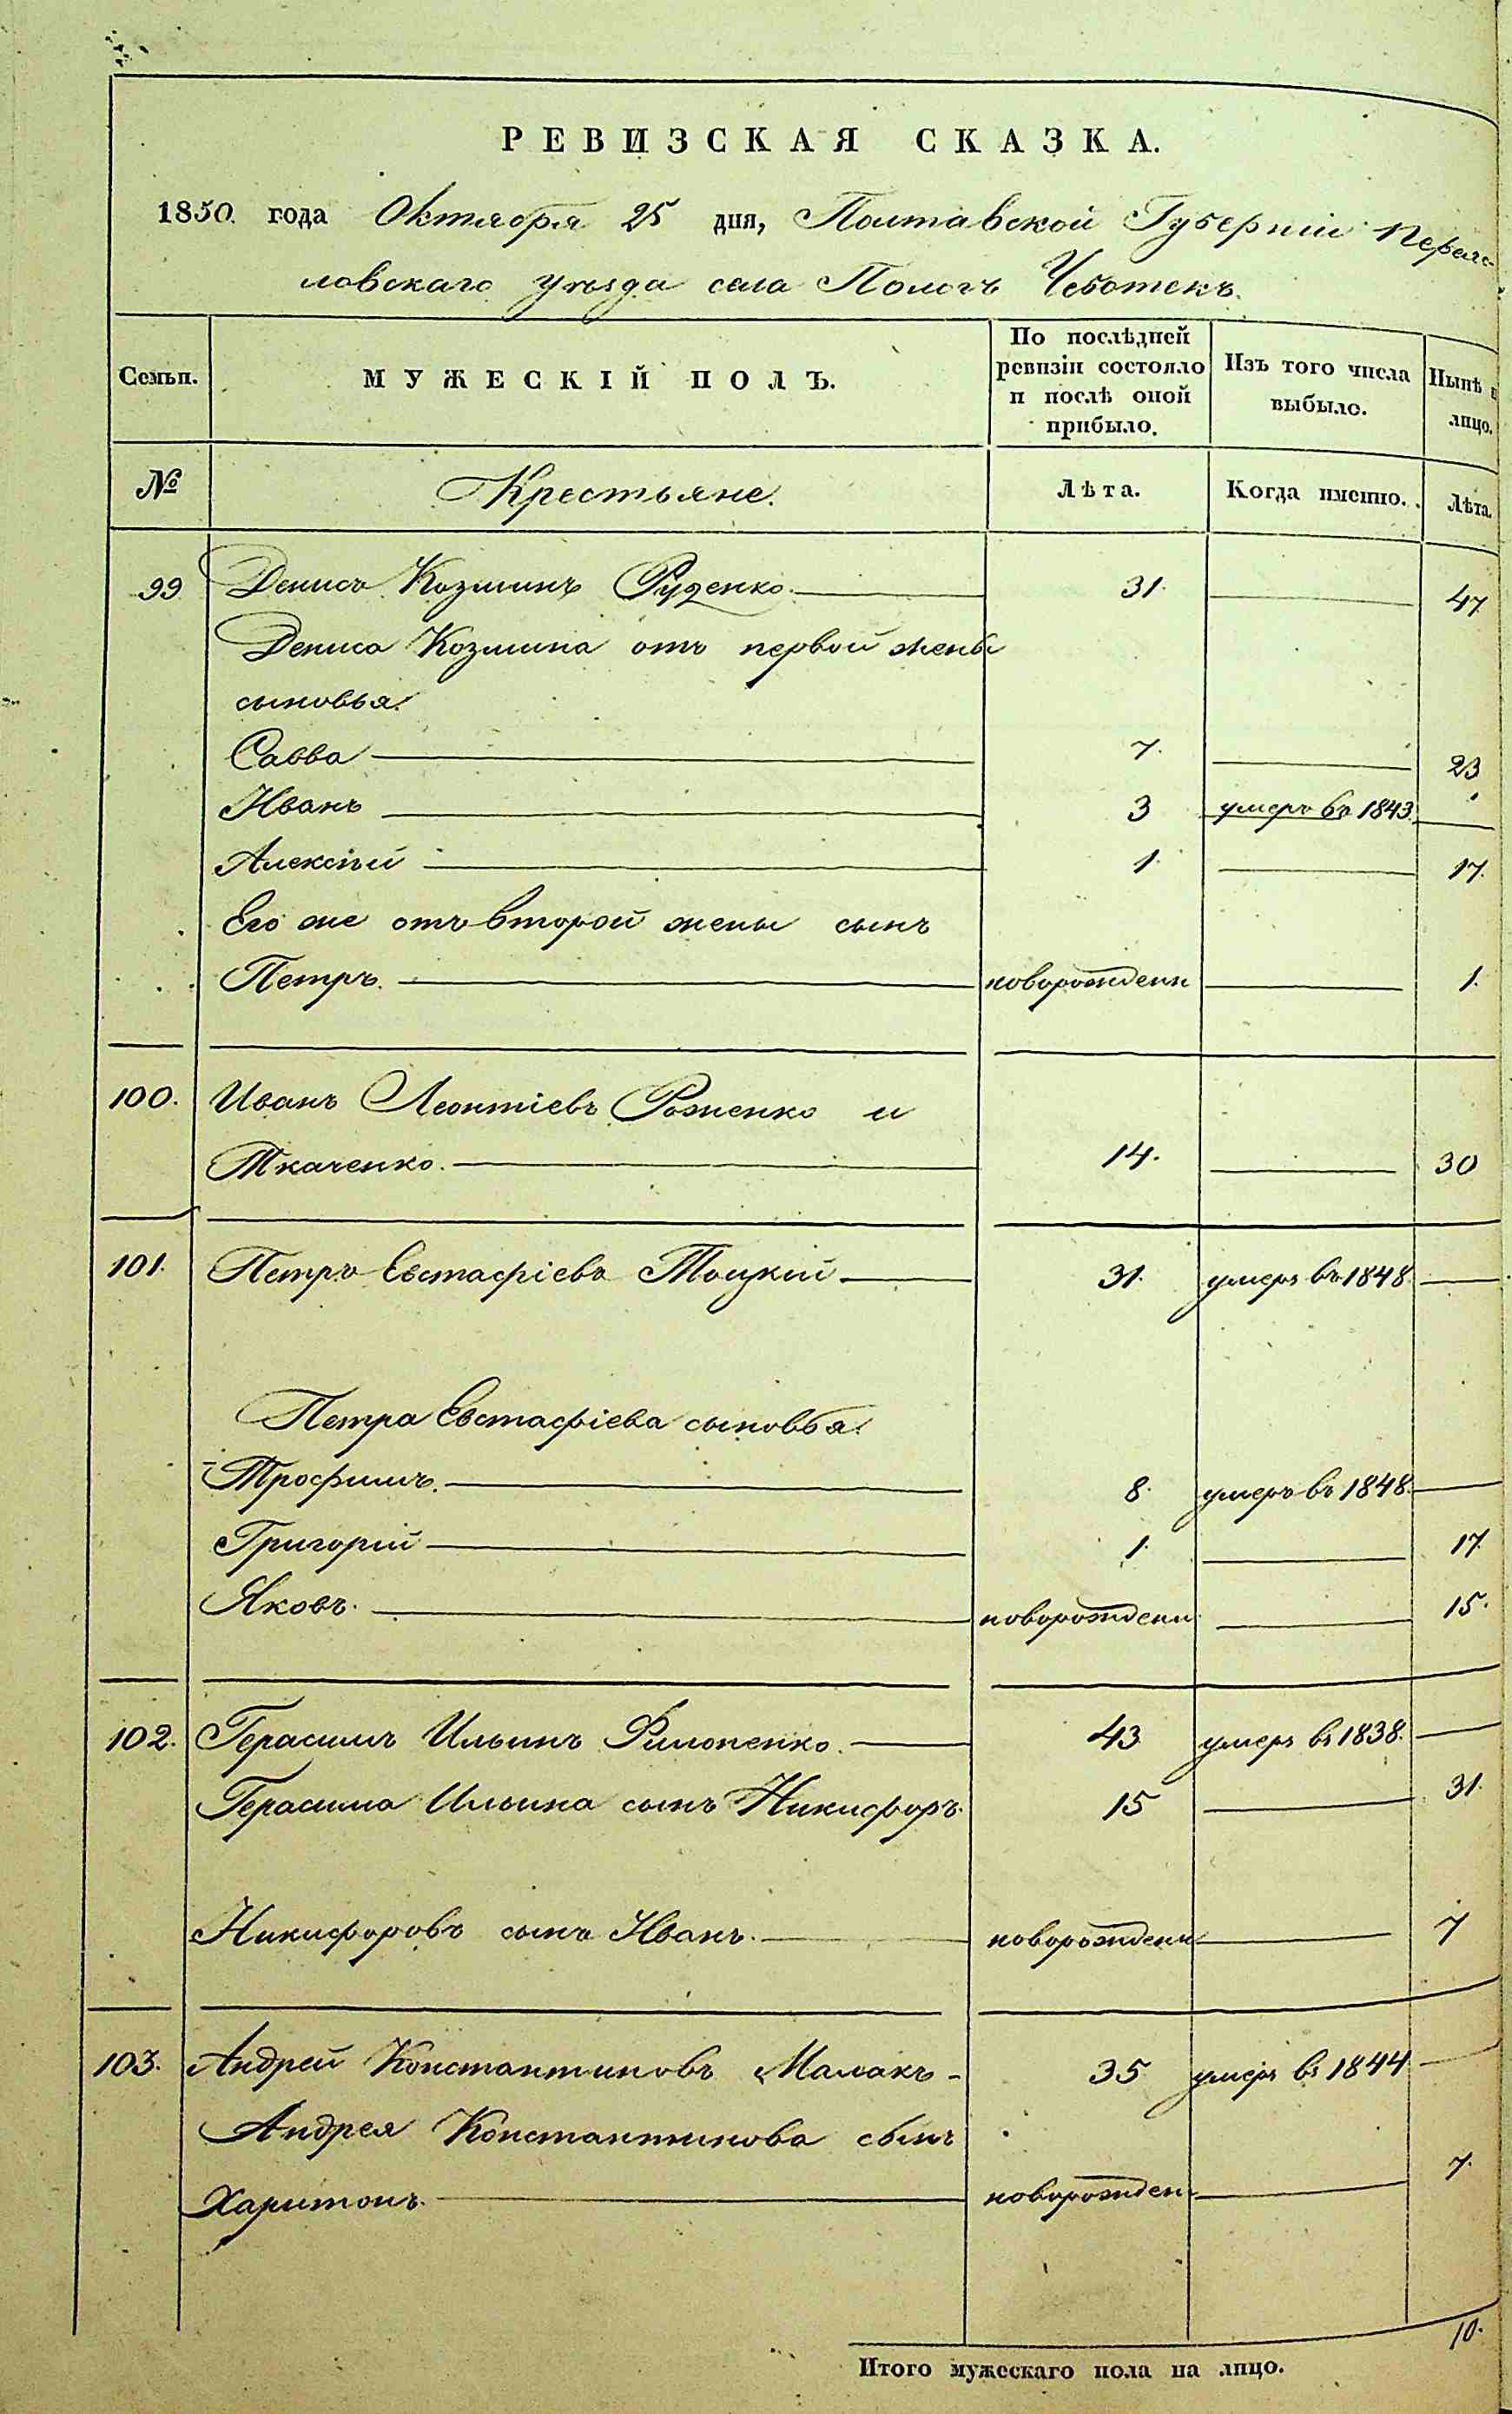 РЕВИЗСКАЯ СКАЗКА.
1850 года Октября 25 дня, Полтавской Губерніи Переяс-
ловскаго уѣзда села Пологъ Чеботекъ.
Семьи. МУЖЕСКІЙ ПОЛЪ. По послѣдней ревизіи состояло и послѣ оной прибыло. Изъ того числа выбыло. Нынѣ лицо.
№ Крестьяне. Лѣта. Когда именно. Лѣта.
99 Денисъ Козминъ Руденко 31. 47
Дениса Козмина отъ первой жены
сыновья
Савва 7. 23
Иванъ 3 умеръ въ 1843.
Алексѣй 1. 17.
Его же отъ второй жены сынъ
Петръ. новорожденн 1.
100. Иванъ Леонтіевъ Роженко и
Ткаченко. 14. 30
101. Петръ Евстафіевъ Тоцкій 31. умеръ въ 1848.
Петра Евстафіева сыновья.
Трофимъ. 8. умеръ въ 1848.
Григорій 1. 17.
Яковъ. новорожденн 15.
102. Герасимъ Ильинъ Филоненко. 43 умеръ въ 1838.
Герасима Ильина сынъ Никифоръ. 15 31.
Никифоровъ сынъ Иванъ. новорожденн 7
103. Андрей Константиновъ Малакъ 35 умеръ въ 1844
Андрея Константинова сынъ
Харитонъ. новорожден 7.
10.
Итого мужескаго пола на лицо.